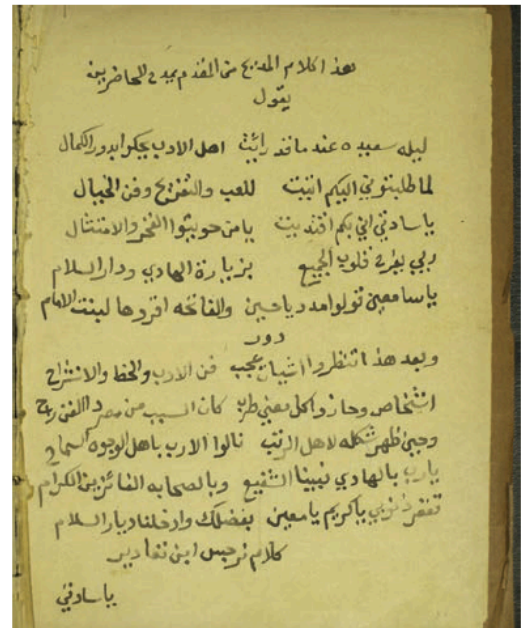 هذا كلام المديح من المقدم يمدح الحاضرين
يقول
ليله سعيده عند ما قد رائيت اهل الادب يحكوا بدور الكمال
لما طلبتوني اليكم اتيت للعب والتفريح وفن الخيال
يا سادتي اني بكم اقتديت يا من حويتوا الفخر والامتثال
ربي يفرح قلوب الجميع بزيارة الهادي ودار السلام
يا سامعين قولوا مدد ياحسين والفاتحه اقروها لبنت الامام
دور
وبعد هذا تنظروا اشيا عجب فن الادب والحظ والانشراح
اشخاص وحازوا كل معني طرب كان السبب من مصر الفن راح
وحين ظهر شكله لاهل الرتب نالوا الارب باهل الوجوه السماح
يارب بالهادي نبينا الشفيع وبالصحابه الفائزين الكرام
تغفر ذنوبي ياكريم يامعين بفضلك وادخلنا ديار السلام
كلام نرجس ابن تقادير
يا سادتي